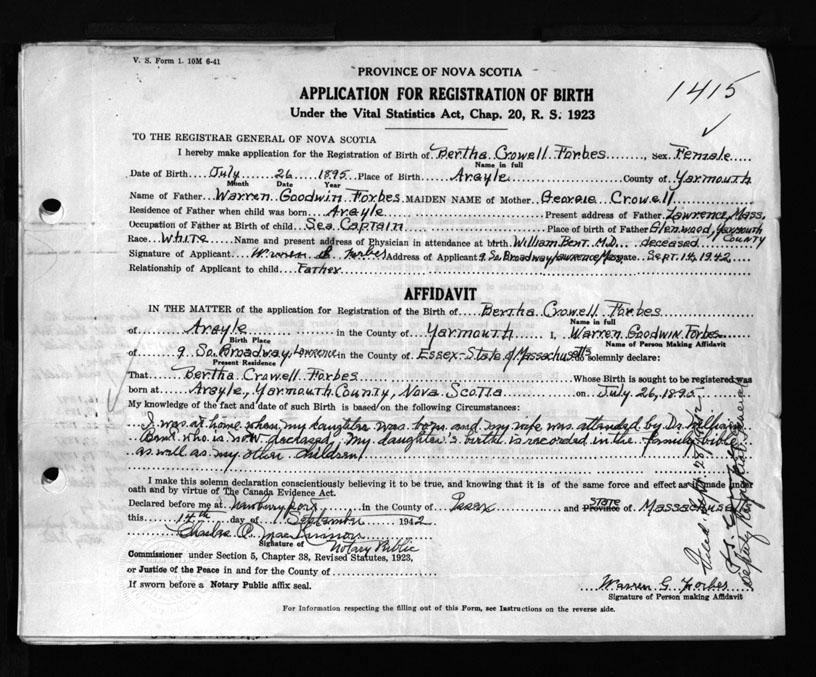 V. S. Form 1. 10M 6-41
PROVINCE OF NOVA SCOTIA
APPLICATION FOR REGISTRATION OF BIRTH
1415
Under the Vital Statistics Act, Chap. 20, R. S. 1923
TO THE REGISTRAR GENERAL OF NOVA SCOTIA
I hereby make application for the Registration of Birth of Bertha Crowell Forbes, Sex Female
Name in full
Date of Birth July 26 1895 Place of Birth Argyle County of Yarmouth
Month Date Year
Name of Father Warren Goodwin Forbes MAIDEN NAME of Mother Georgie Crowell
Residence of Father when child was born Argyle Present address of Father Lawrence, Mass.
Occupation of Father at Birth of child Sea Captain Place of birth of Father Glenwood, Yarmouth County
Race White Name and present address of Physician in attendance at birth William Bent, M.D. deceased
Signature of Applicant Warren G. Forbes Address of Applicant 9 So. Broadway Lawrence Mass Date Sept. 14, 1942
Relationship of Applicant to child Father
AFFIDAVIT
IN THE MATTER of the application for Registration of the Birth of Bertha Crowell Forbes
Name in full
of Argyle in the County of Yarmouth I, Warren Goodwin Forbes
Birth Place Name of Person Making Affidavit
of 9 So. Broadway, Lawrence in the County of Essex-State of Massachusetts solemnly declare:
Present Residence
That Bertha Crowell Forbes Whose Birth is sought to be registered was
born at Argyle, Yarmouth County, Nova Scotia on July 26, 1895
My knowledge of the fact and date of such Birth is based on the following Circumstances:
I was at home when my daughter was born and my wife was attended by Dr. William
Bent who is now deceased, my daughter's birth is recorded in the family bible
as well as my other children
I make this solemn declaration conscientiously believing it to be true, and knowing that it is of the same force and effect as if made under
oath and by virtue of The Canada Evidence Act.
Declared before me at Newburyport in the County of Essex and State Province of Massachusetts
this 14th day of September 1942
Signature of Notary Public
Commissioner under Section 5, Chapter 38, Revised Statutes, 1923,
or Justice of the Peace in and for the County of
If sworn before a Notary Public affix seal.
Warren G. Forbes
Signature of Person making Affidavit
For Information respecting the filling out of this Form, see Instructions on the reverse side.
Deputy Registrar General